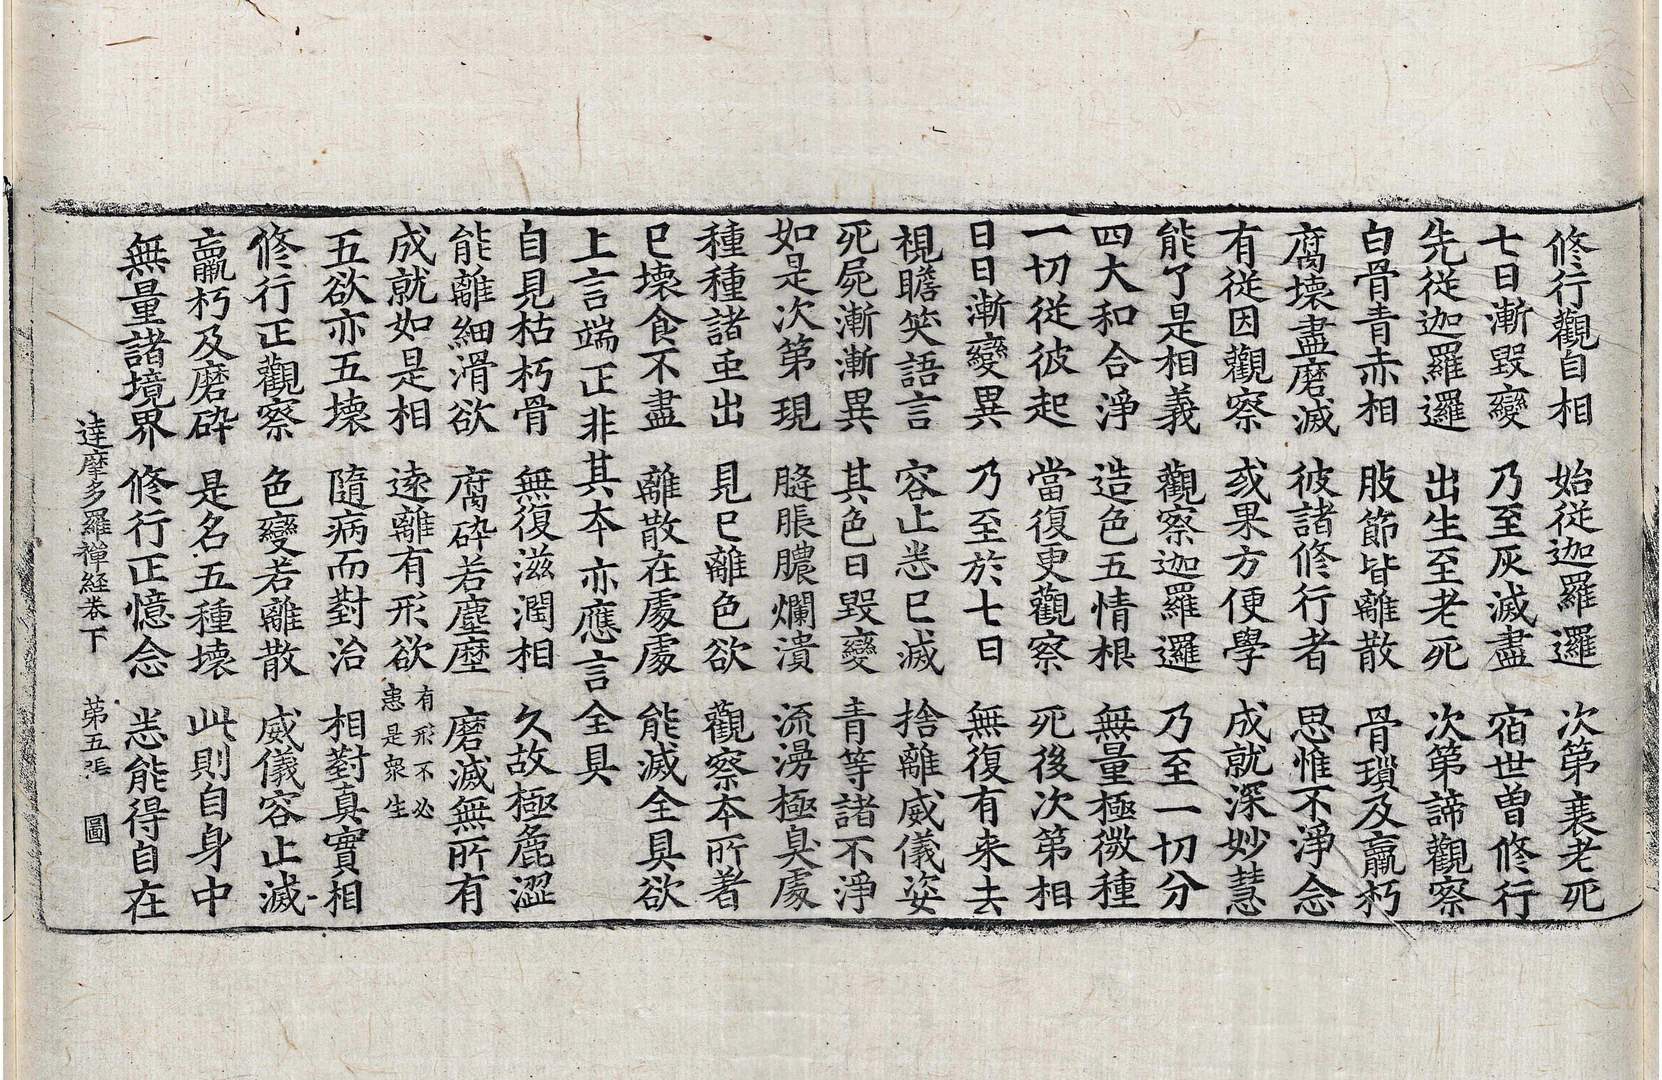 修行觀自相 始從迦羅邏 次第衰老死
七日漸毀變 乃至灰滅盡 宿世曾修行
先從迦羅邏 出生至老死 次第諦觀察
白骨青赤相 肢節皆離散 骨瑣及羸朽
腐壞盡磨滅 彼諸修行者 思惟不淨念
有從因觀察 或果方便學 成就深妙慧
能了是相義 觀察迦羅邏 乃至一切分
四大和合淨 造色五情根 無量極微種
一切從彼起 當復更觀察 死後次第相
日日漸變異 乃至於七日 無復有来去
視瞻笑語言 容止悉已滅 捨離威儀姿
死屍漸漸異 其色日毀變 青等諸不淨
如是次第現 膖脹膿爛潰 流漫極臭處
種種諸虫出 見已離色欲 觀察本所著
已壞食不盡 離散在處處 能滅全具欲
上言端正非其本亦應言全具
自見枯朽骨 無復滋潤相 久故極麁澀
能離細滑欲 腐碎若塵塵 磨滅無所有
成就如是相 遠離有形欲 有形不必
恚是衆生
五欲亦五壞 隨病而對治 相對真實相
修行正觀察 色變若離散 威儀容止滅
羸朽及磨碎 是名五種壞 此則自身中
無量諸境界 修行正憶念 悉能得自在
達摩多羅禪經卷下 第五張 圖